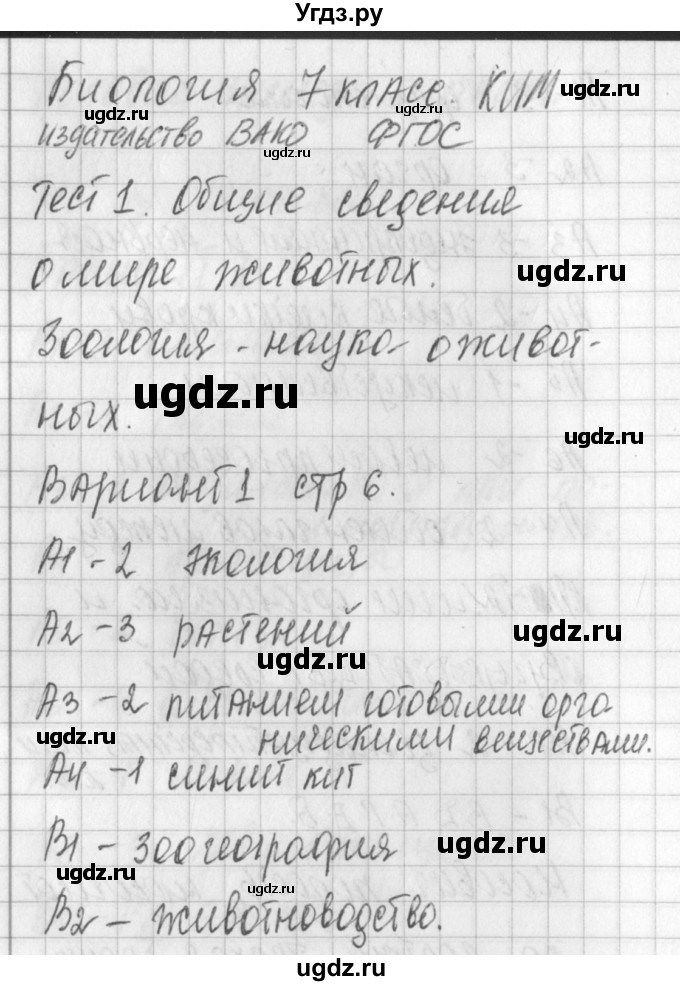 Угдз.ру
Биология 7 класс. КИМ
ugdz.ru
издательство ВАКО ФГОС
ugdz.ru
ugdz.ru
Тест 1. Общие сведения
о мире животных.
ugdz.ru
Зоология - наука о живот-
ugdz.ru
ных.
ugdz.ru
Вариант 1 стр 6.
А1 - 2 экология
А2 - 3 растений
ugdz.ru
ugdz.ru
А3 - 2 питанием готовыми орга
ugdz.ru
ническими веществами.
А4 - 1 синий кит
В1 - зоогеография
ugdz.ru
ugdz.ru
ugdz.ru
В2 - животноводство.
ugdz.ru